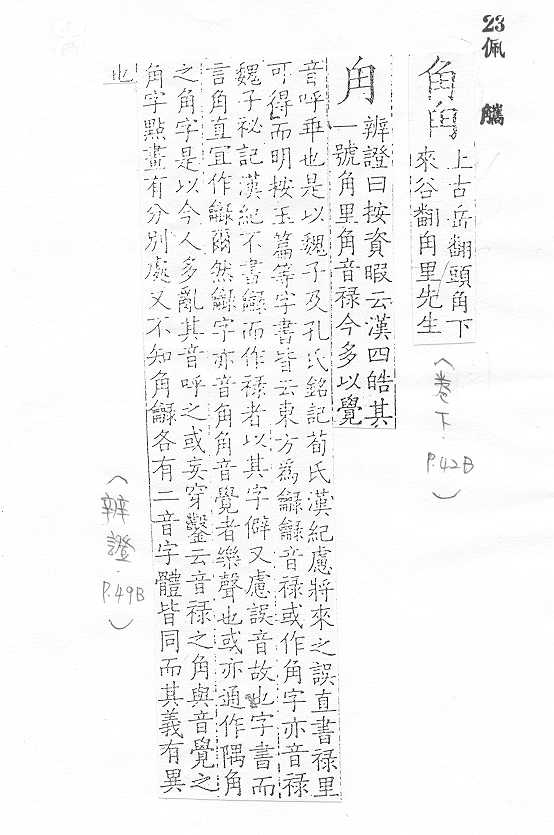 23 佩觿
角𧢲 上古岳翻頭角下
來谷翻角里先生
(卷下 P.42B)
角 辨證曰按資暇云漢四皓其
一號角里角音祿今多以覺
音呼乖也是以魏子及孔氏銘記荀氏漢紀慮將來之誤直書祿里
可得而明按玉篇等字書皆云東方為䚫䚫音祿或作角字亦音祿
魏子祕記漢紀不書䚫而作祿者以其字僻又慮誤音故也字書而
言角直宜作䚫爾然䚫字亦音角角音覺者樂聲也或亦通作隅角
之角字是以今人多亂其音呼之或妄穿鑿云音祿之角與音覺之
角字點畫有分別處又不知角䚫各有二音字體皆同而其義有異
也
(辨證 P.49B)